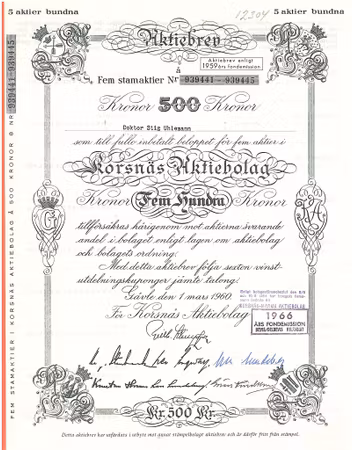 5 aktier bundna
5 aktier bundna
12304
Aktiebrev
Aktiebrev enligt
1959 års fondemission
å
Fem stamaktier Nr 939441—939445
Kronor 500 Kronor
Doktor Stig Uhlemann
som till fullo inbetalt beloppet för fem aktier i
Korsnäs Aktiebolag
Kronor Fem Hundra Kronor
tillförsäkras härigenom mot aktierna svarande
andel i bolaget enligt lagen om aktiebolag
och bolagets ordning.
Med detta aktiebrev följa sexton vinst-
utdelningskuponger jämte talong.
Gävle den 1 mars 1960.
För Korsnäs Aktiebolag
1966
ÅRS FONDEMISSION
Kr. 500 Kr.
Detta aktiebrev har utfärdats i utbyte mot annat stämpelbelagt aktiebrev och är därför fritt från stämpel.
FEM STAMAKTIER I KORSNÄS AKTIEBOLAG Å 500 KRONOR Nr 939441—939445